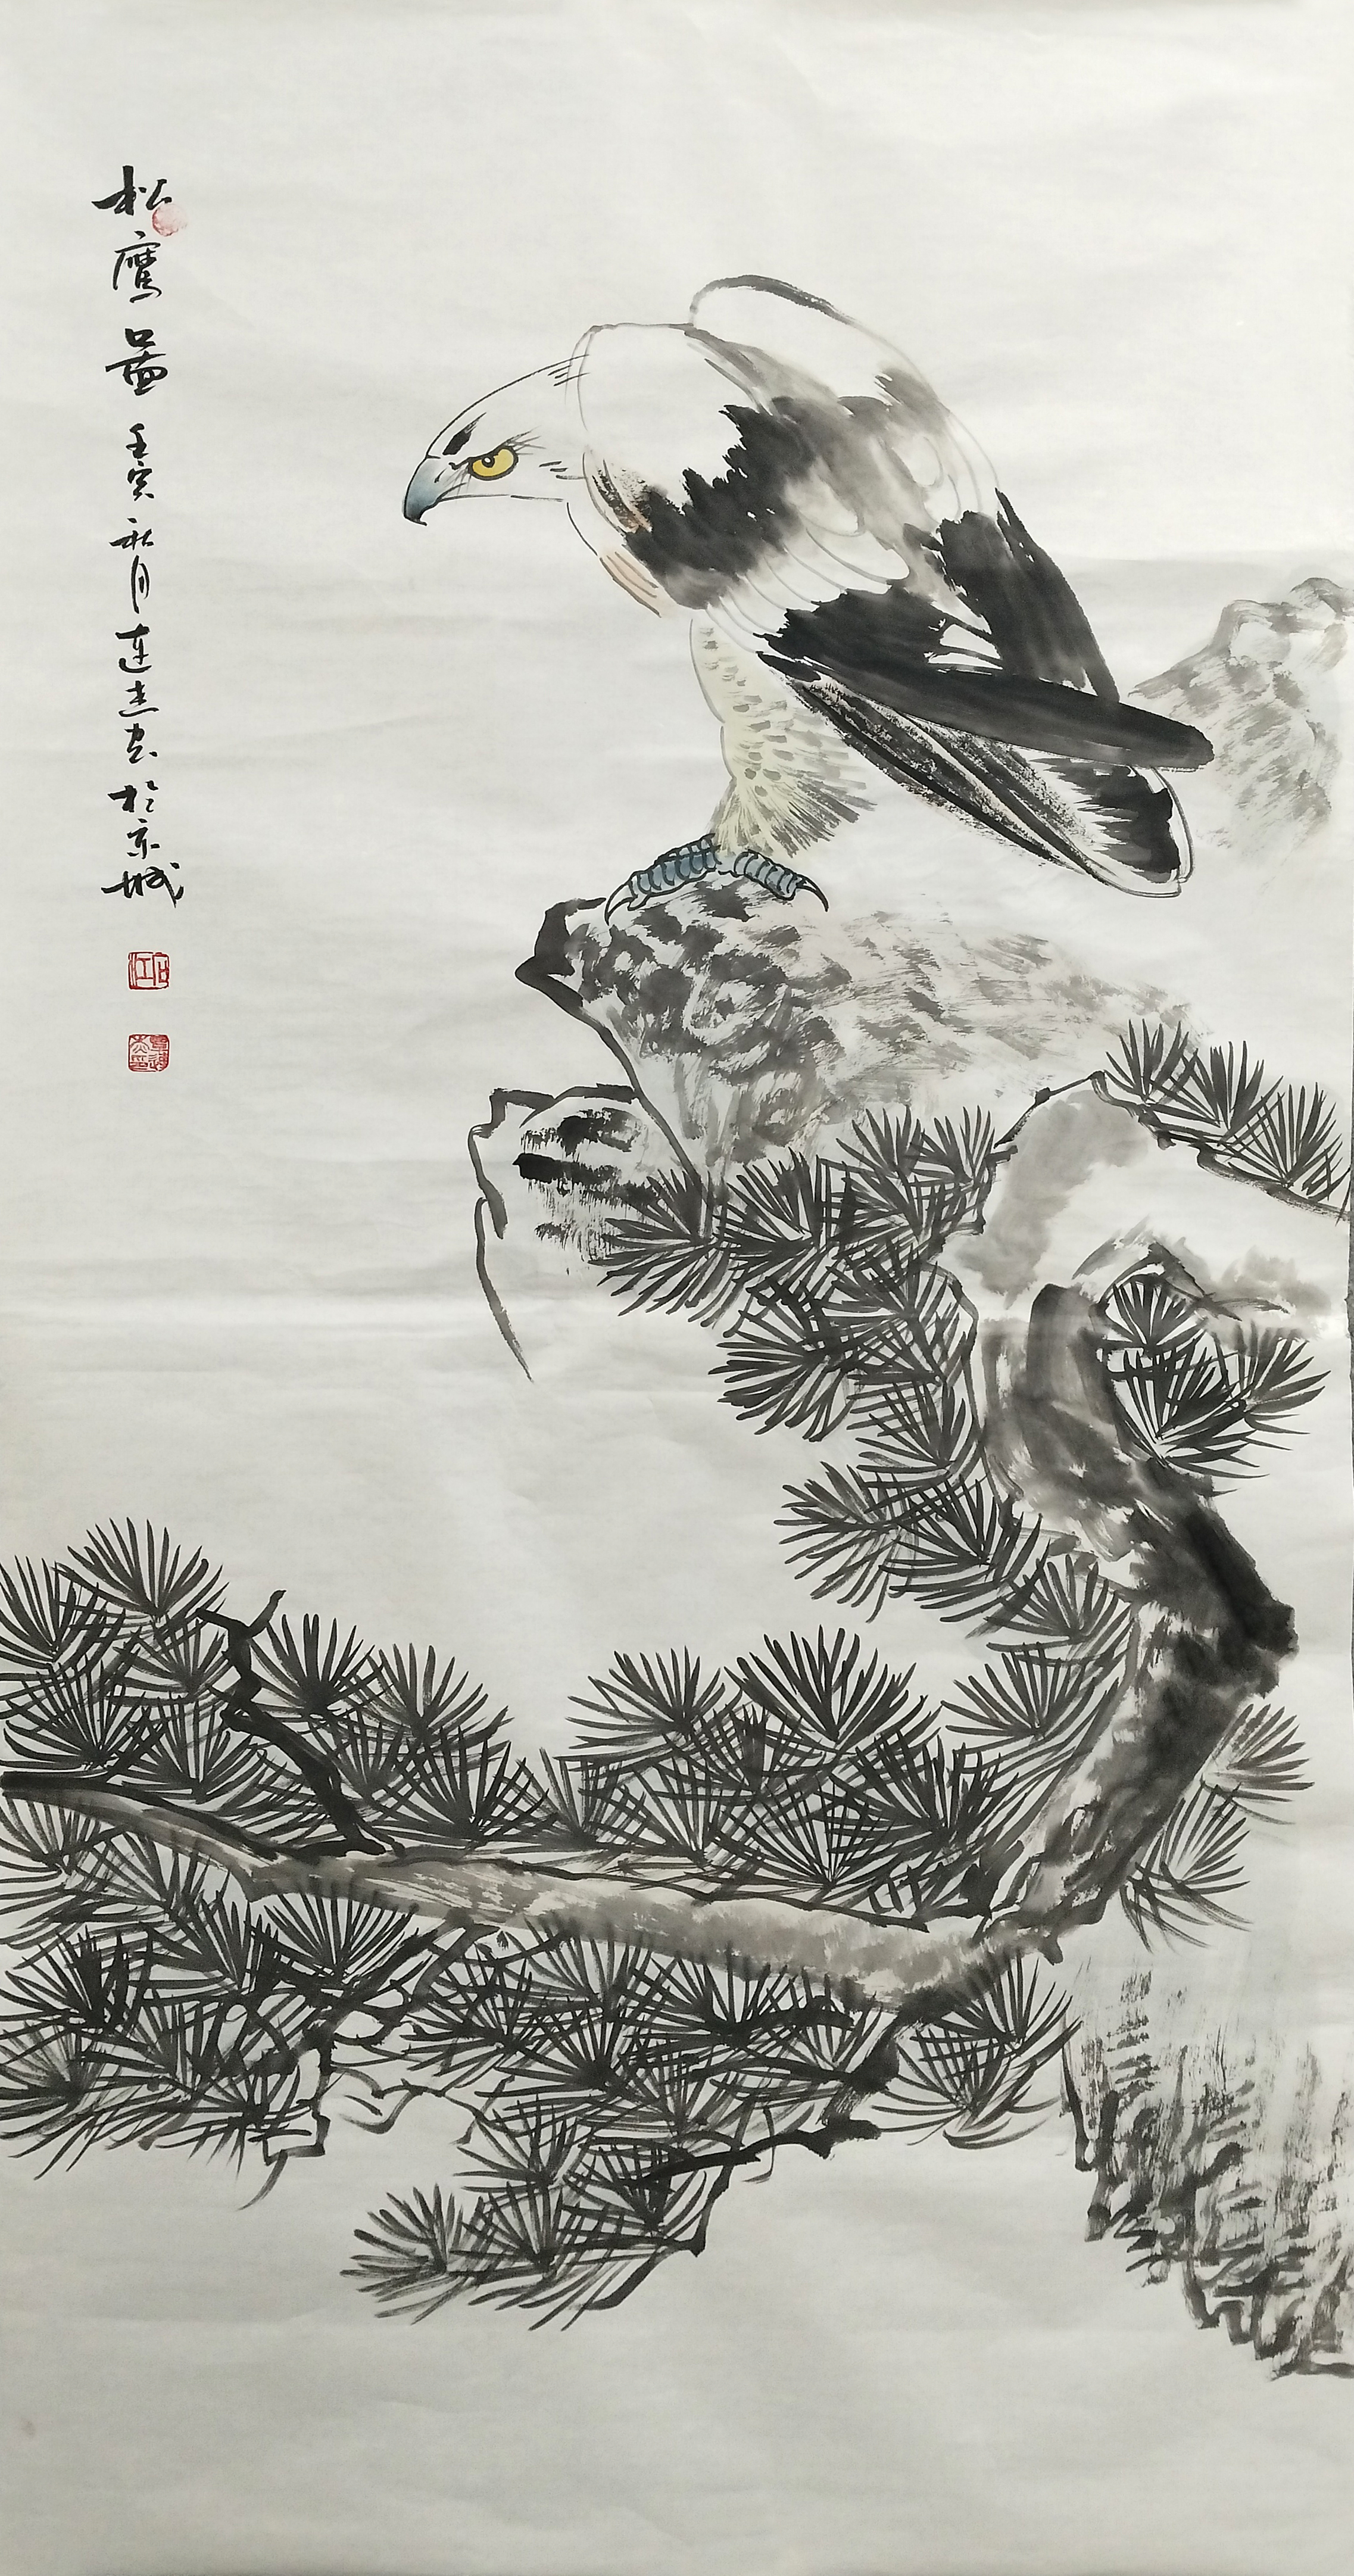 松鹰图 壬寅秋月连杰画于京城